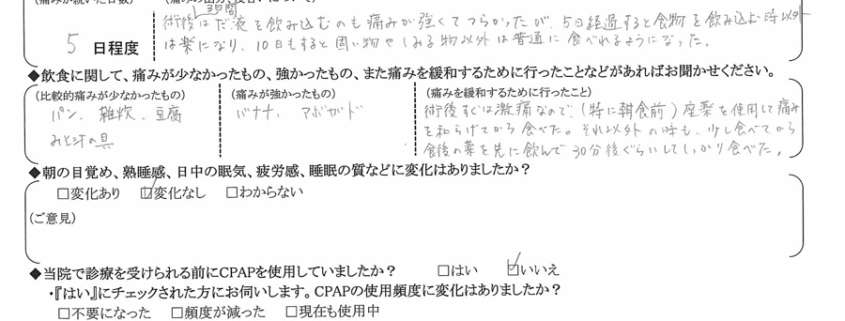 5 日程度
術後はだ液を飲み込むのも痛みが強くてつらかったが、5日経過すると食物を飲み込む時以外
は楽になり、10日もすると固い物やしみる物以外は普通に食べれるようになった。
◆飲食に関して、痛みが少なかったもの、強かったもの、また痛みを緩和するために行ったことなどがあればお聞かせください。
(比較的痛みが少なかったもの)
パン、雑炊、豆腐
みそ汁の具
(痛みが強かったもの)
バナナ、アボガド
(痛みを緩和するために行ったこと)
術後すぐは激痛なので、(特に朝食前)座薬を使用して痛み
を和らげてから食べた。それ以外の時も、少し食べてから
食後の薬を先に飲んで30分後ぐらいしてしっかり食べた。
◆朝の目覚め、熟睡感、日中の眠気、疲労感、睡眠の質などに変化はありましたか?
□変化あり ☑変化なし □わからない
(ご意見)
◆当院で診療を受けられる前にCPAPを使用していましたか? □はい ☑いいえ
・『はい』にチェックされた方にお伺いします。CPAPの使用頻度に変化はありましたか?
□不要になった □頻度が減った □現在も使用中